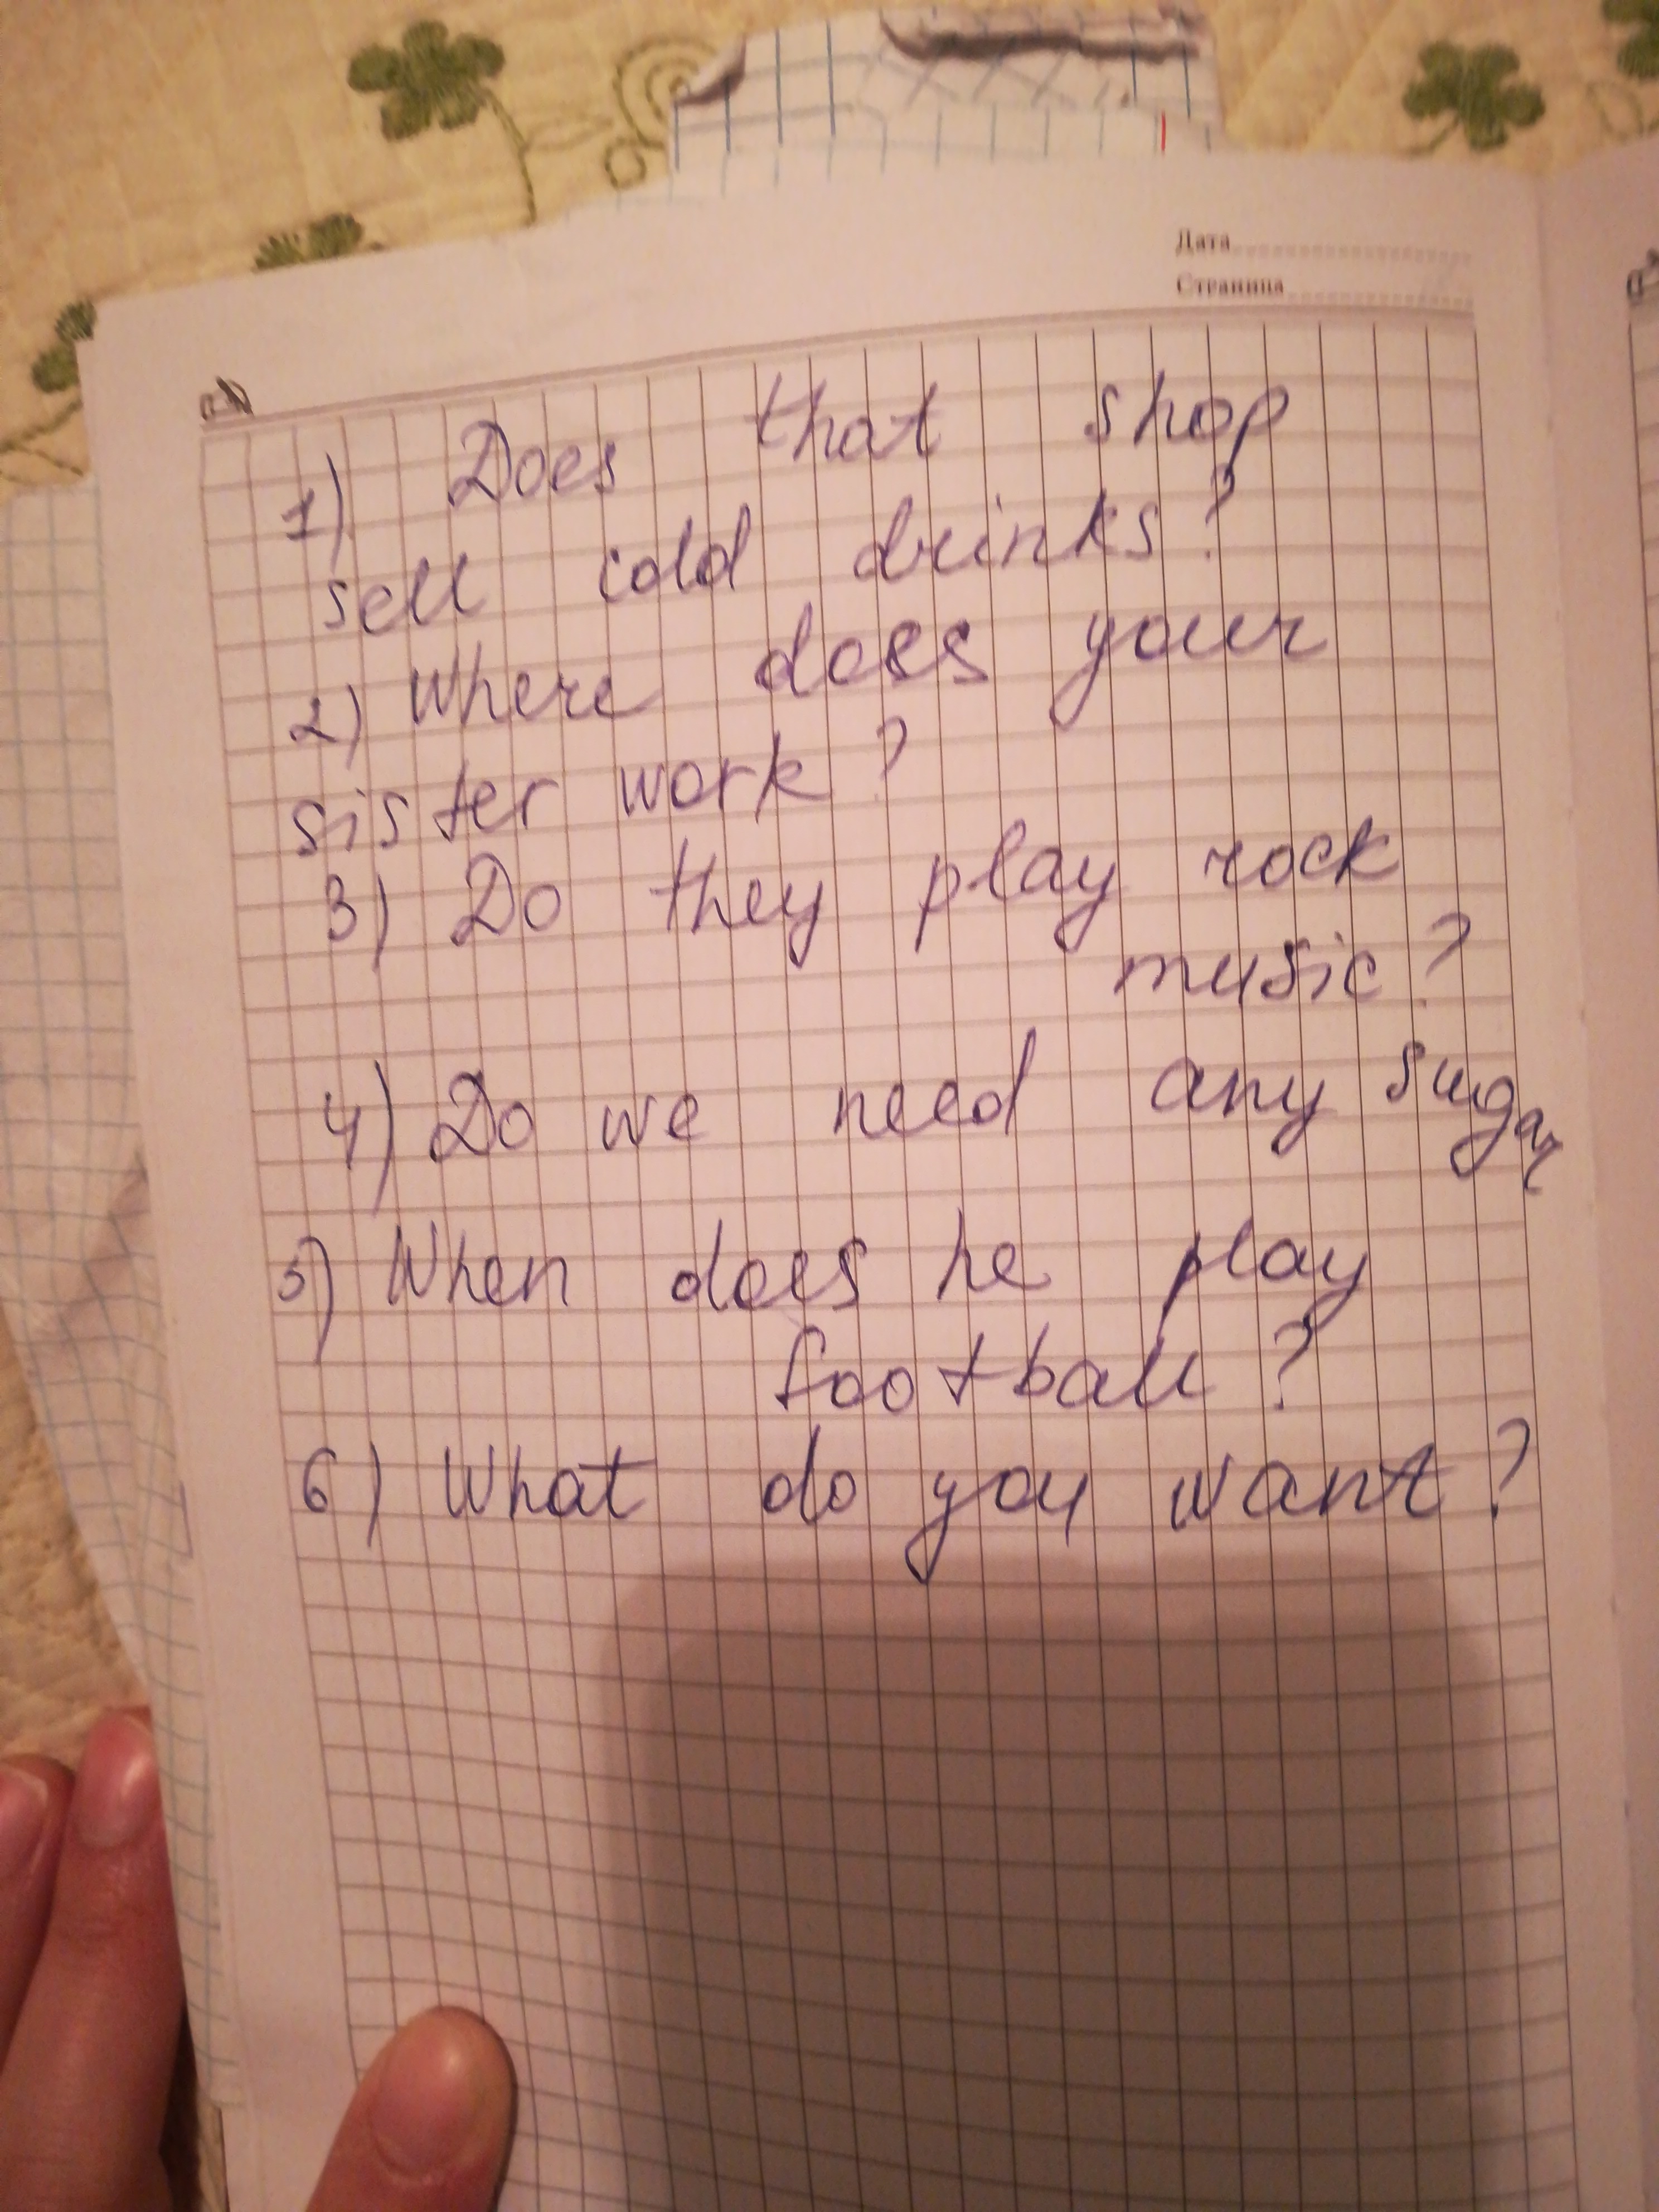 Дата
Страница
1) Does that shop
sell cold drinks?
2) Where does your
sister work?
3) Do they play rock
music?
4) Do we need any sugar
5) When does he play
football?
6) What do you want?